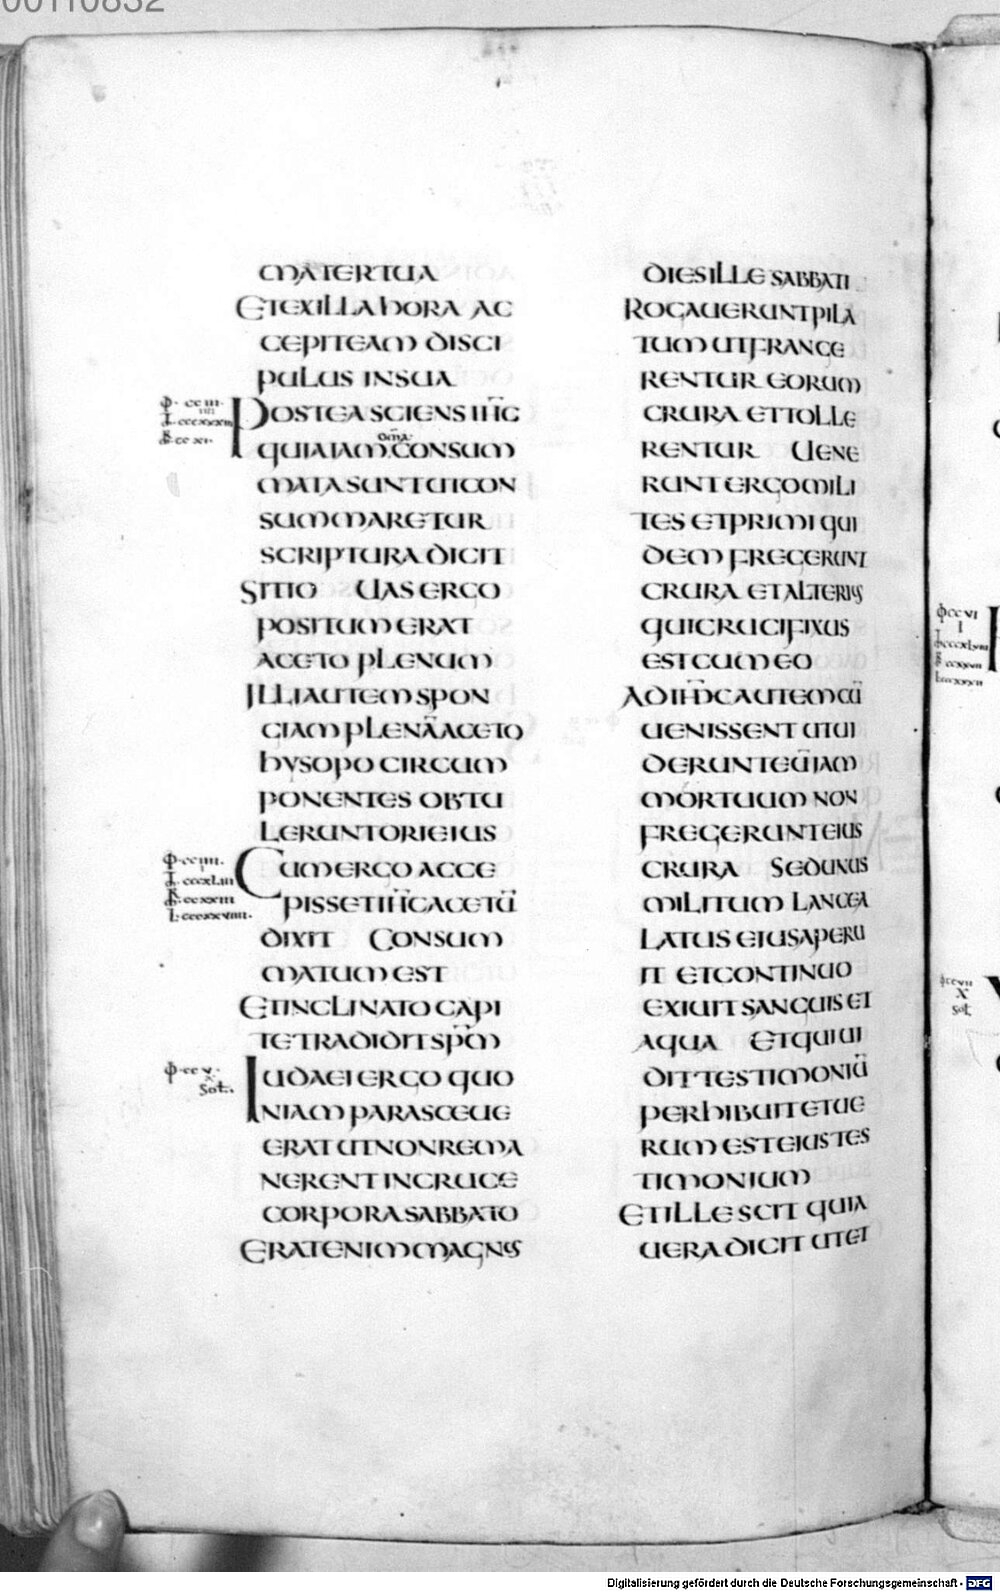 00110832
MATERTUA
ETEXILLAHORA AC
CEPITEAM DISCI
PULUS INSUA
POSTEA SCIENS IHC
QUIAIAM CONSUM
OMA
MATASUNTUTCON
SUMMARETUR
SCRIPTURA DICIT
SITIO UAS ERGO
POSITUM ERAT
ACETO PLENUM
ILLIAUTEM SPON
GIAM PLENĀ ACETO
HYSOPO CIRCUM
PONENTES OBTU
LERUNTORIEIUS
CUMERGO ACCE
PISSETIHCACETŪ
DIXIT CONSUM
MATUM EST
ETINCLINATO CAPI
TETRADIDITSPM
IUDAEI ERGO QUO
NIAM PARASCEUE
ERAT UTNONREMA
NERENT INCRUCE
CORPORASABBATO
ERATENIMMAGNUS
DIESILLE SABBATI
ROGAUERUNTPILA
TUM UTFRANGE
RENTUR EORUM
CRURA ETTOLLE
RENTUR UENE
RUNTERGOMILI
TES ETPRIMI QUI
DEM FREGERUNT
CRURA ETALTERIUS
QUICRUCIFIXUS
ESTCUMEO
ADIHMCAUTEMCŪ
UENISSENT UTUI
DERUNTEŪIAM
MORTUUM NON
FREGERUNTEIUS
CRURA SEDUNUS
MILITUM LANCEA
LATUS EIUSAPERU
IT ETCONTINUO
EXIUIT SANGUIS ET
AQUA ETQUIUI
DITTESTIMONIŪ
PERHIBUITETUE
RUM ESTEIUSTES
TIMONIUM
ETILLESCIT QUIA
UERADICIT UTET
Digitalisierung gefördert durch die Deutsche Forschungsgemeinschaft - DFG